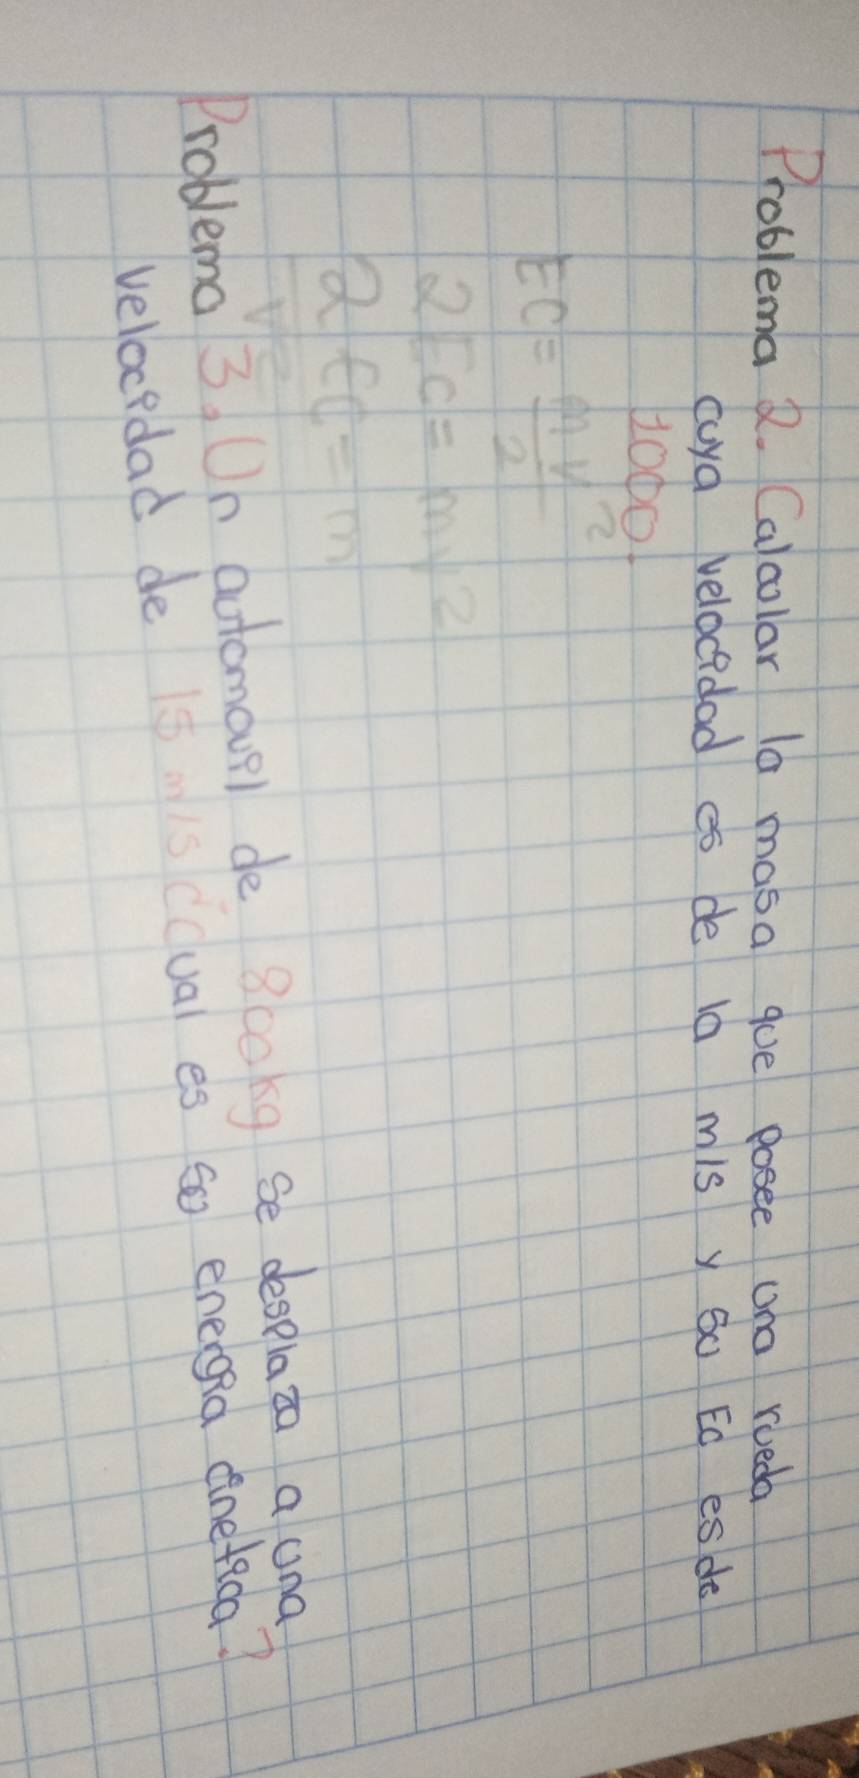 Problema 2. Calcular la masa que posee una rueda
cuya velocidad es de 10 m/s y su Ec es de
1000.
Ec = mv²
2
2Ec = mv²
2 Ec = m
v²
Problema 3. Un automovil de 800kg se desplaza a una
velocidad de 15 m/s ¿Cual es su energia cinetica?